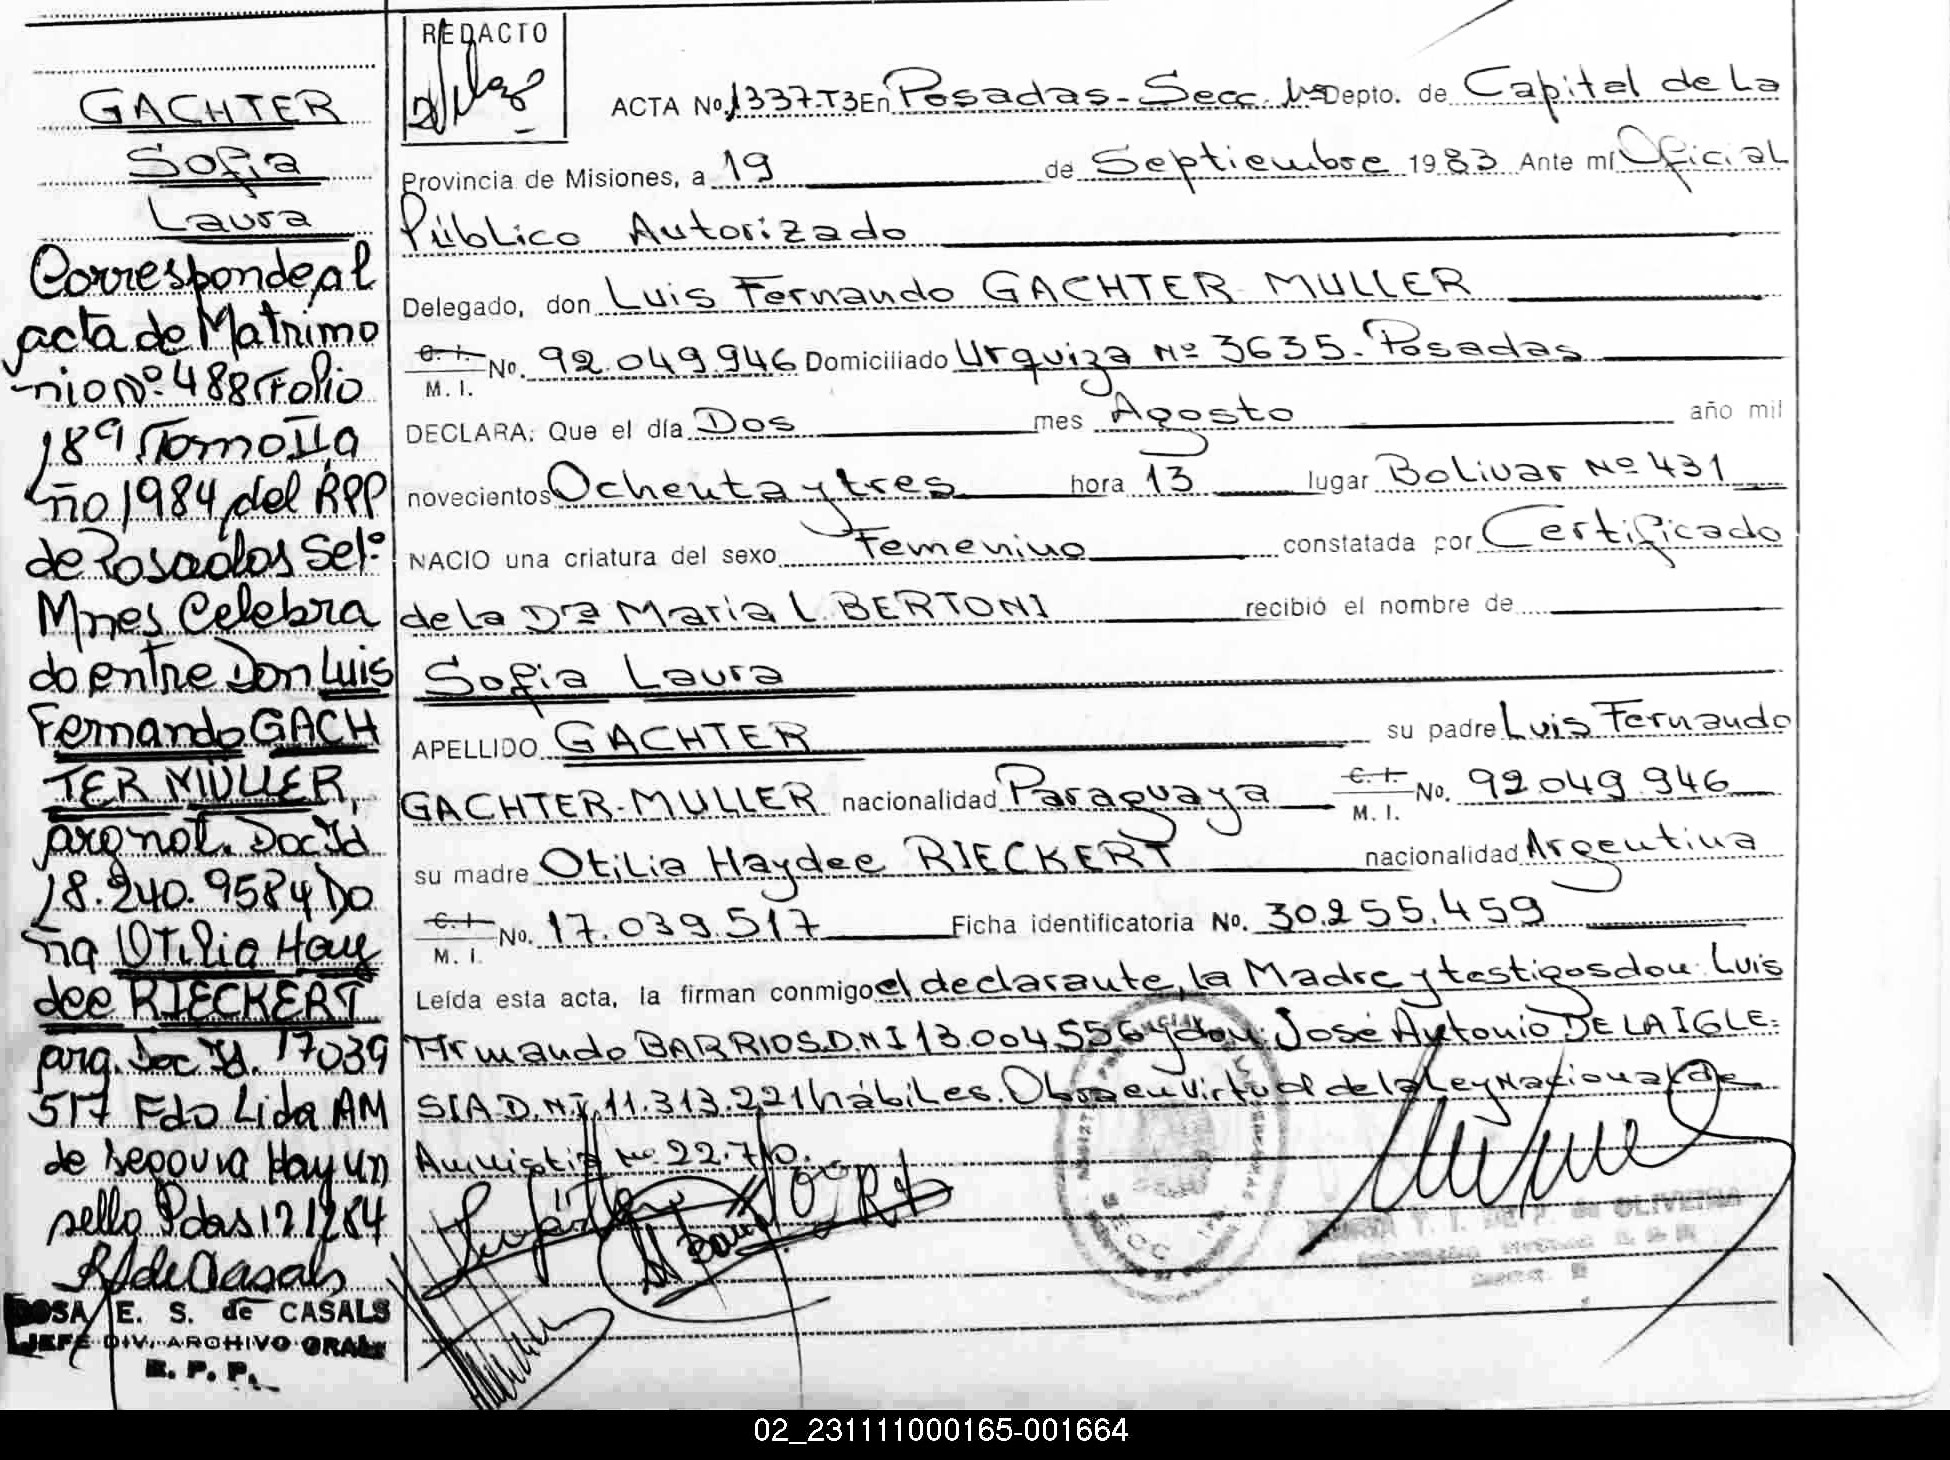 GACHTER
Sofia
Laura
Corresponde al
acta de Matrimo
nio Nº 488 Folio
189 Tomo II a
ño 1984 del RPP
de Posadas Sel.º
Mnes Celebra
do entre Don Luis
Fernando GACH
TER MÜLLER,
arg nat. Doc Id
18.240.958 y Do
ña Otilia Hay
dee RIECKERT
arg. Doc Id. 17039
517 Fdo Lida AM
de Segovia Hay un
sello Pdas 12 12 84
R S de Casals
ROSA E. S. de CASALS
JEFE DIV. ARCHIVO GRAL.
R. P. P.
REDACTO
ACTA No. 1337-T3 En Posadas - Secc. 1ª Depto. de Capital de La
Provincia de Misiones, a 19 de Septiembre 1983 Ante mí Oficial
Público Autorizado
Delegado, don Luis Fernando GACHTER MULLER
C. I. M. I. No. 92.049.946 Domiciliado Urquiza Nº 3635 - Posadas
DECLARA: Que el día Dos mes Agosto año mil
novecientos Ochenta y tres hora 13 lugar Bolivar Nº 431
NACIO una criatura del sexo Femenino constatada por Certificado
de la Drª Maria L. BERTONI recibió el nombre de
Sofia Laura
APELLIDO GACHTER su padre Luis Fernando
GACHTER-MULLER nacionalidad Paraguaya C. I. M. I. No. 92 049.946
su madre Otilia Haydee RIECKERT nacionalidad Argentina
C. I. M. I. No. 17.039.517 Ficha identificatoria No. 30.255.459
Leída esta acta, la firman conmigo el declarante, la Madre y testigos don: Luis
Armando BARRIOS D.N.I 13.004.556 y don: José Antonio DE LA IGLE=
SIA D.N.I. 11.313.221 hábiles. Obra en virtud de la Ley Nacional de
Amnistia Nº 22.710.
02_231111000165-001664